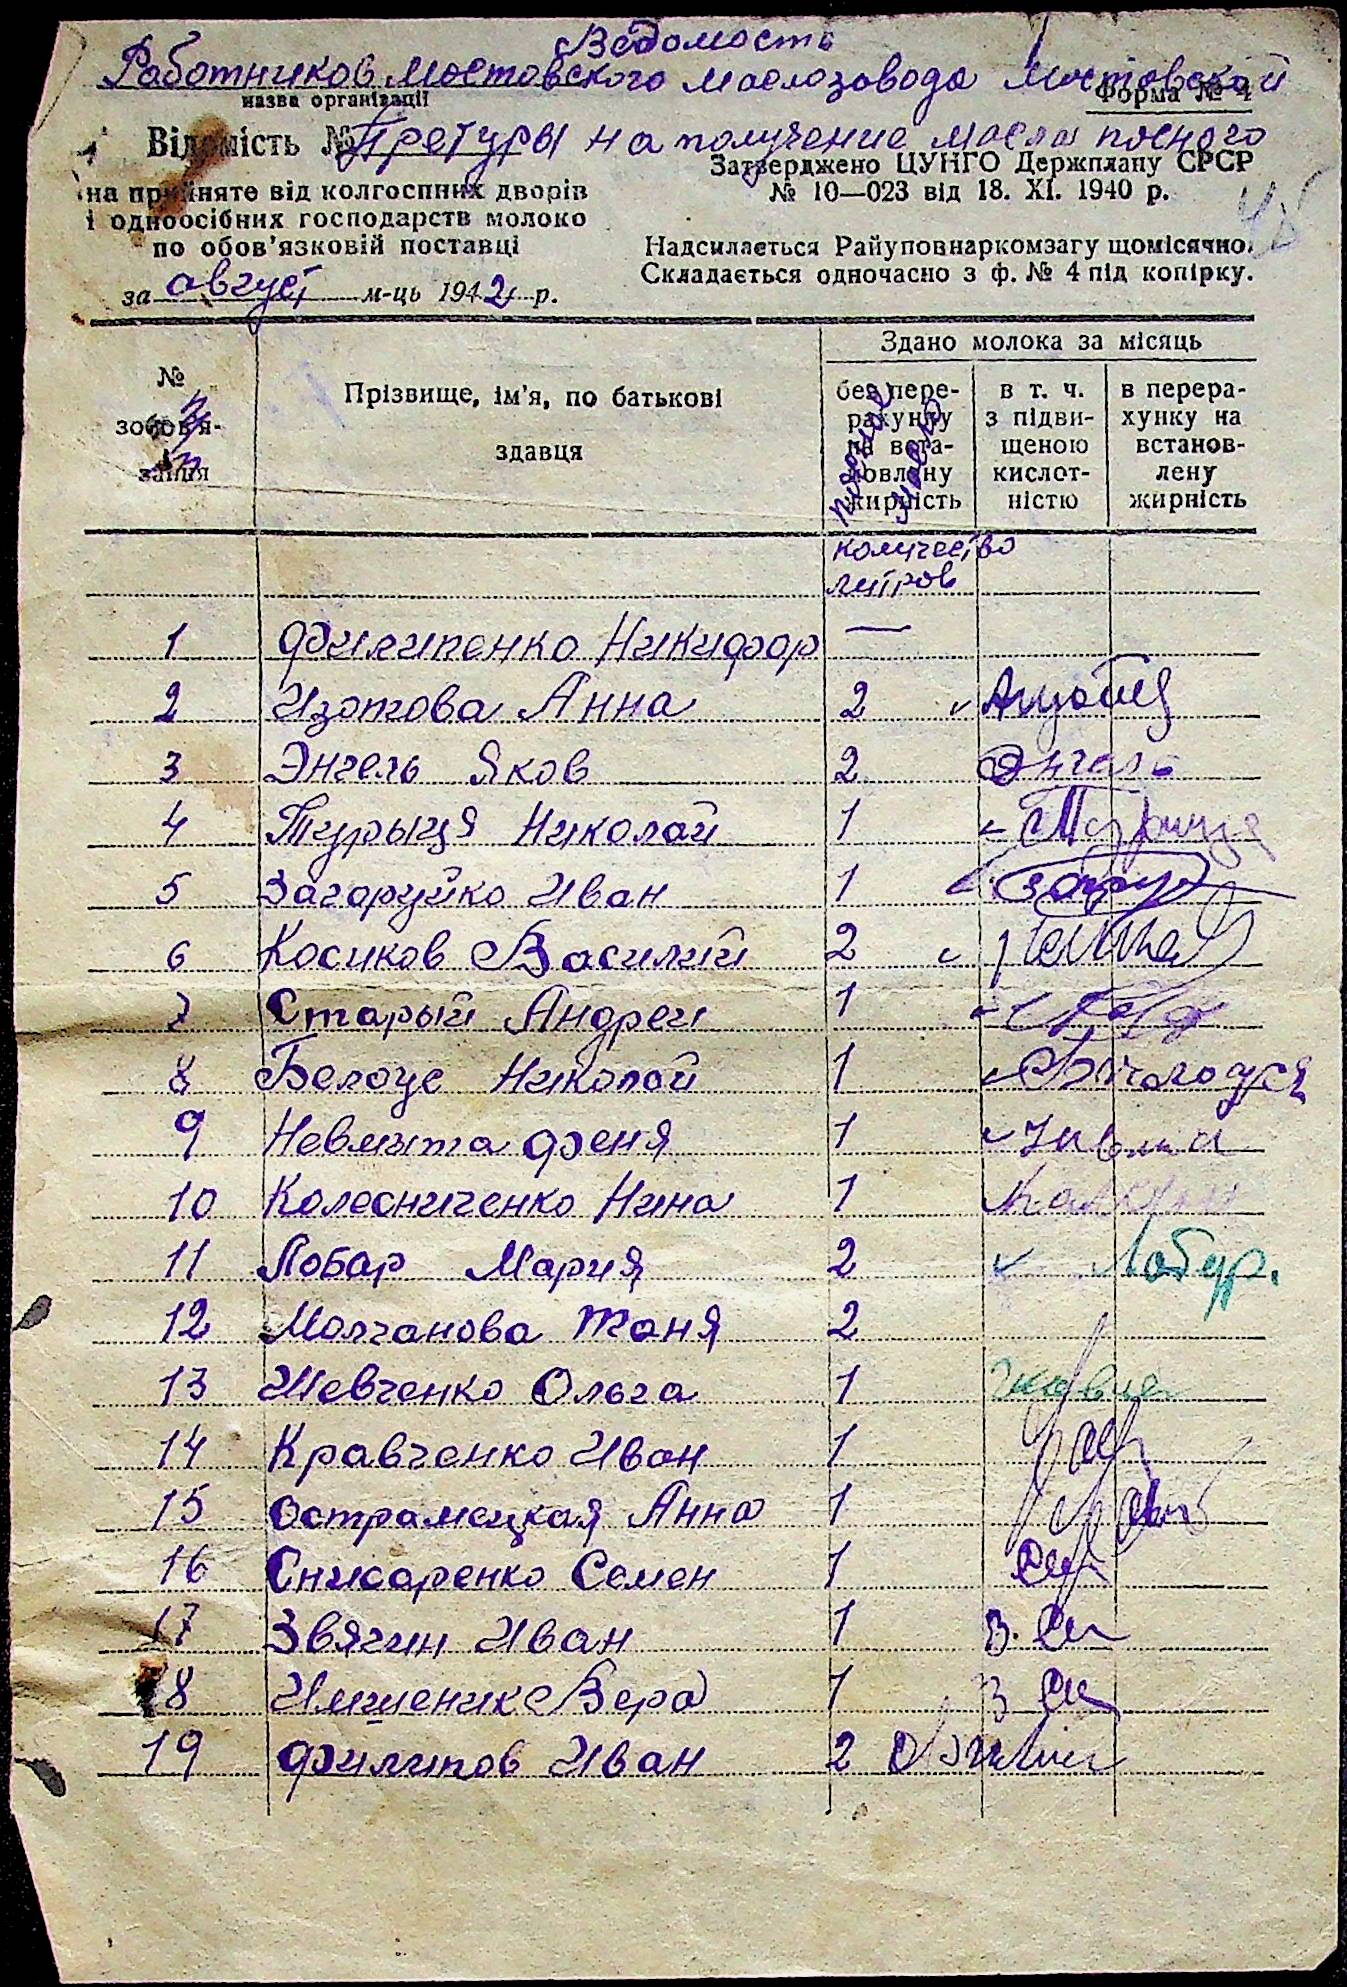 Ведомость
Работников Мостовского маслозавода Мостовской
назва організації
Форма № 4
Відомість №
Претуры на получение масла посного
на прийняте від колгоспних дворів
і одноосібних господарств молоко
по обов'язковій поставці
за август м-ць 1942 р.
Затверджено ЦУНГО Держплану СРСР
№ 10—023 від 18. XI. 1940 р.
Надсилається Райуповнаркомзагу щомісячно.
Складається одночасно з ф. № 4 під копірку.
№ зобов'язання
Прізвище, ім'я, по батькові
здавця
Здано молока за місяць
без перерахунку на встановлену жирність
в т. ч. з підвищеною кислотністю
в перерахунку на встановлену жирність
количество
литров
1 Филипенко Никифор —
2 Изотова Анна 2
3 Энгель Яков 2 Энгель
4 Турыця Николай 1
5 Загоруйко Иван 1
6 Косиков Василий 2
7 Старый Андрей 1
8 Белоус Николай 1
9 Невмыта Феня 1
10 Колесниченко Нина 1
11 Лобар Мария 2
12 Молчанова Таня 2
13 Шевченко Ольга 1
14 Кравченко Иван 1
15 Острамецкая Анна 1
16 Снисаренко Семен 1
17 Звягин Иван 1
18 Имшеник Вера 1
19 Филипов Иван 2